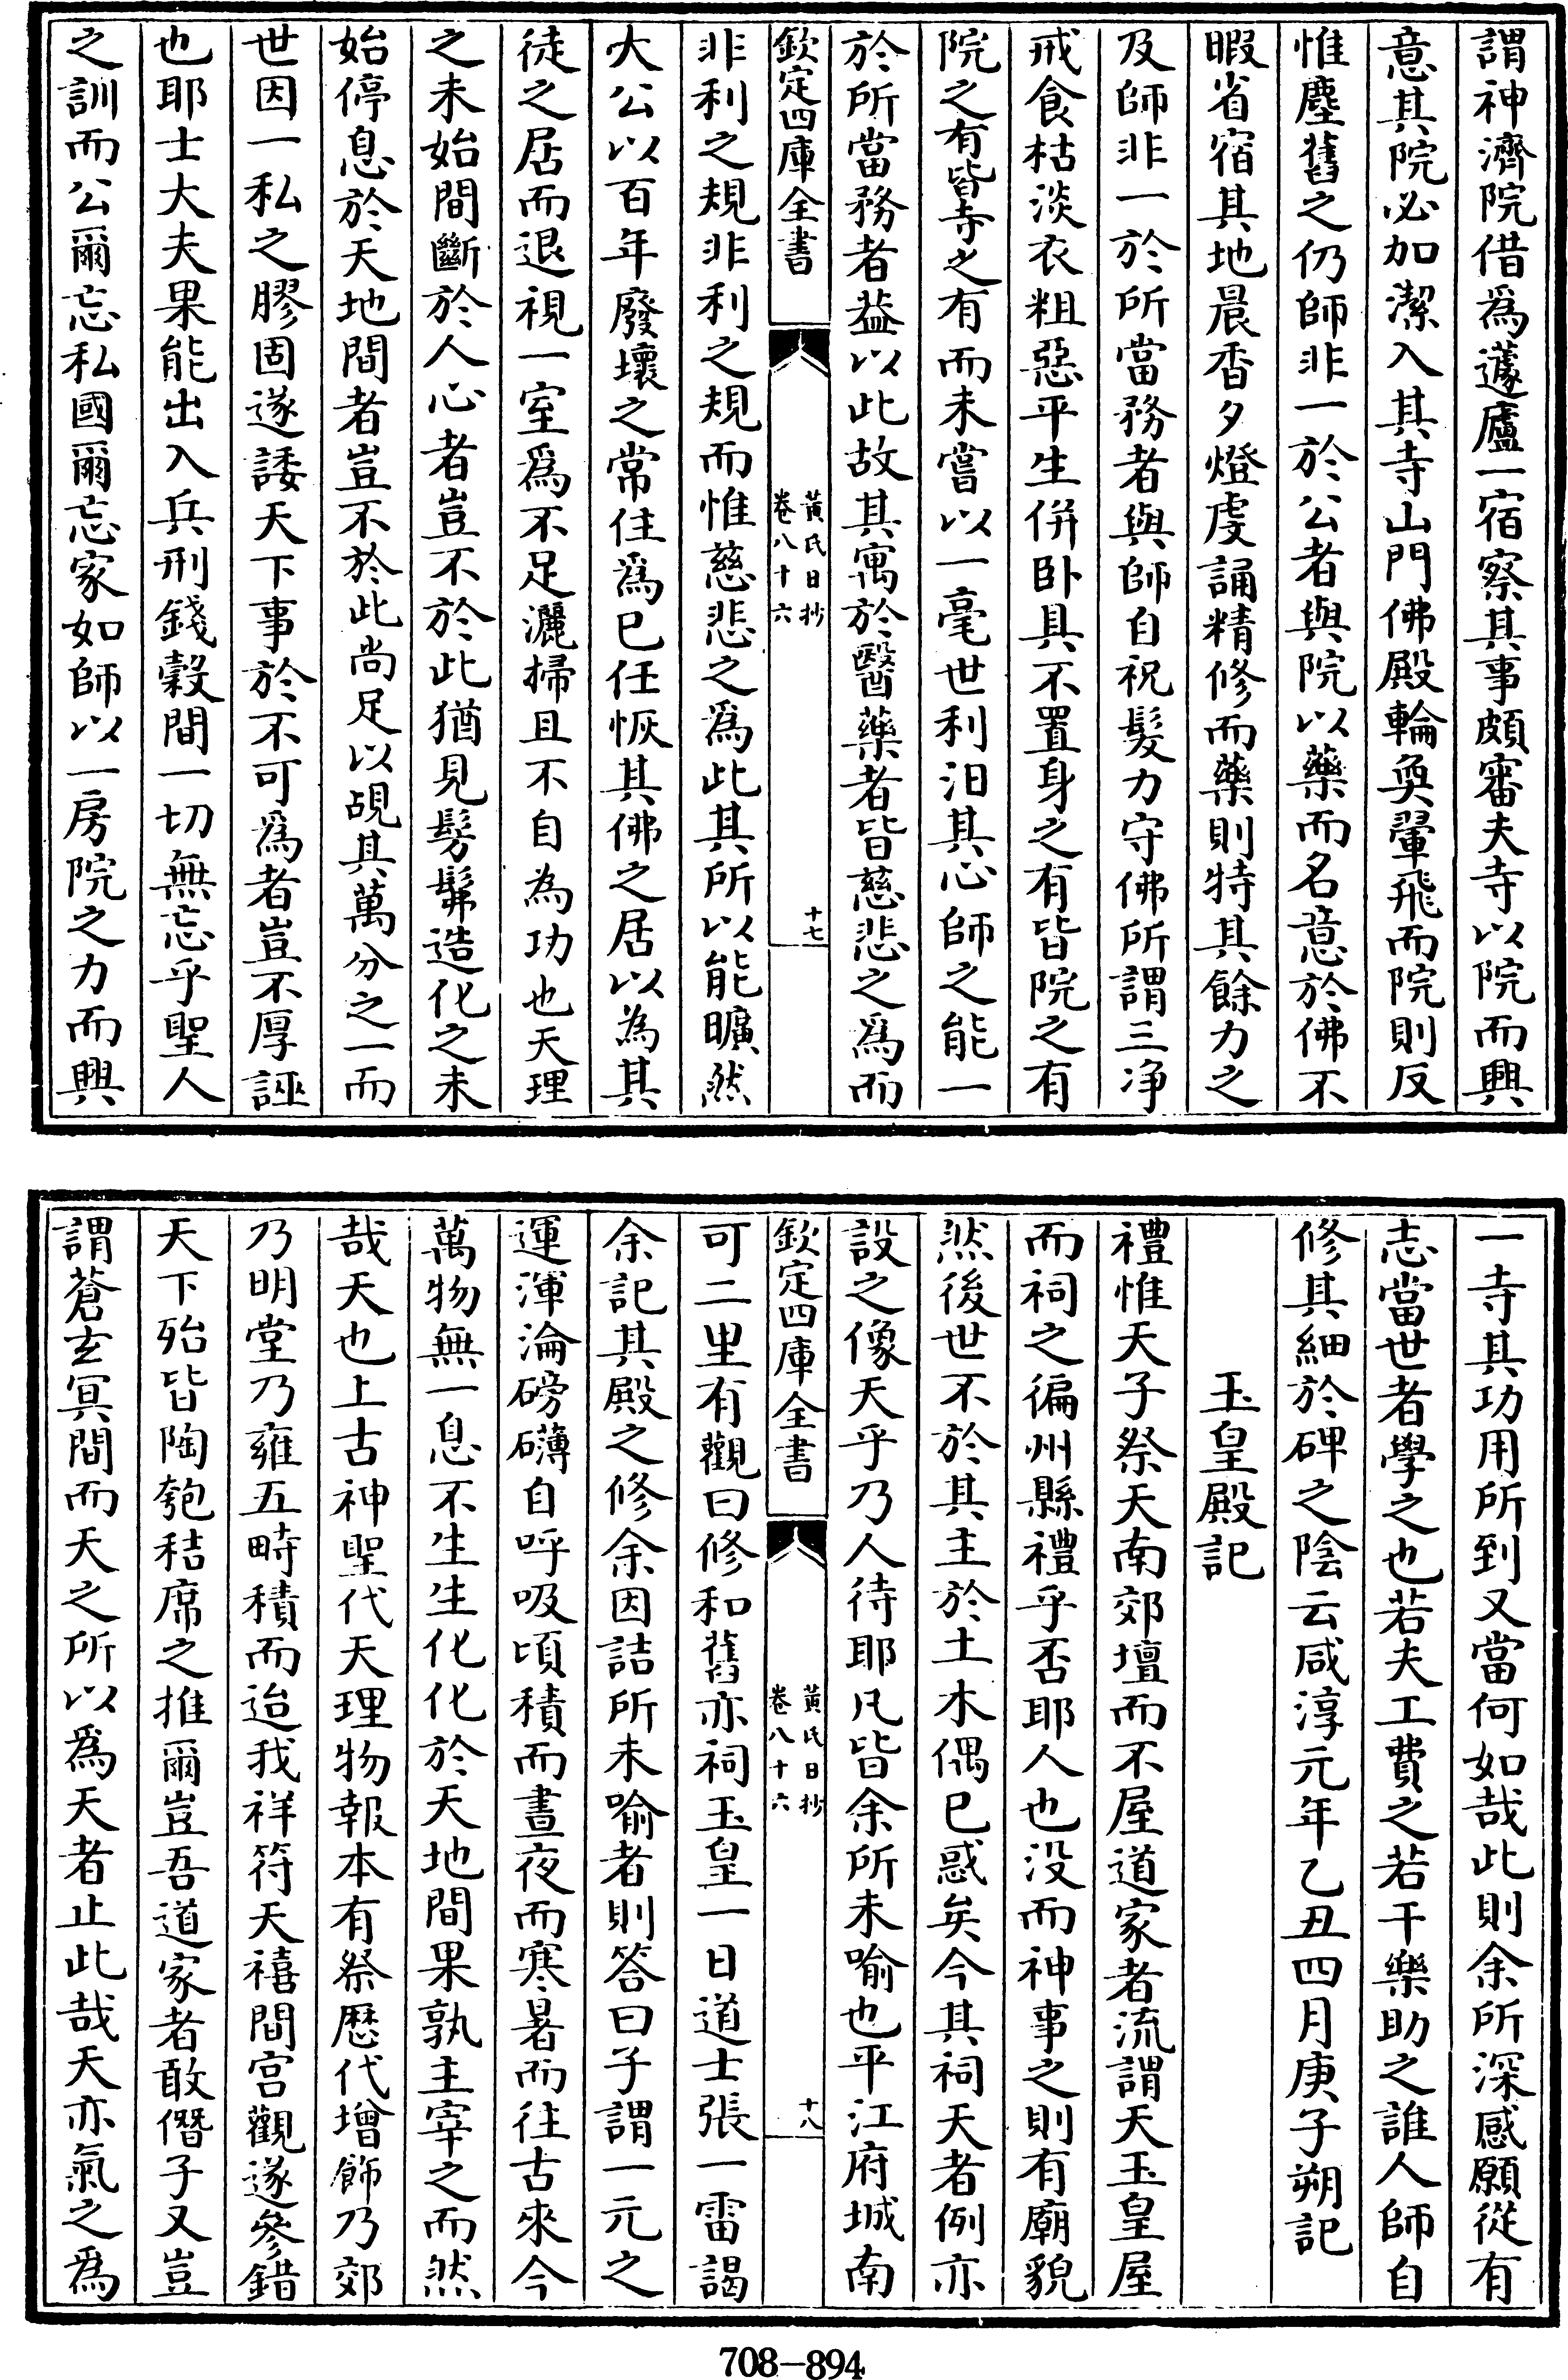 謂神濟院借爲蘧廬一宿察其事頗審夫寺以院而興
意其院必加潔入其寺山門佛殿輪奐翬飛而院則反
惟塵舊之仍師非一於公者與院以藥而名意於佛不
暇省宿其地晨香夕燈虔誦精修而藥則特其餘力之
及師非一於所當務者與師自祝髮力守佛所謂三净
戒食枯淡衣粗惡平生併卧具不置身之有皆院之有
院之有皆寺之有而未嘗以一毫世利汨其心師之能一
於所當務者益以此故其寓於醫藥者皆慈悲之爲而
欽定四庫全書
黄氏日抄
卷八十六
十七
非利之規非利之規而惟慈悲之爲此其所以能曠然
大公以百年廢壞之常住爲已任恢其佛之居以為其
徒之居而退視一室爲不足灑掃且不自為功也天理
之未始間斷於人心者豈不於此猶見髣髴造化之未
始停息於天地間者豈不於此尚足以覘其萬分之一而
世因一私之膠固遂諉天下事於不可爲者豈不厚誣
也耶士大夫果能出入兵刑錢穀間一切無忘乎聖人
之訓而公爾忘私國爾忘家如師以一房院之力而興
一寺其功用所到又當何如哉此則余所深感願從有
志當世者學之也若夫工費之若干樂助之誰人師自
修其細於碑之陰云咸淳元年乙丑四月庚子朔記
玉皇殿記
禮惟天子祭天南郊壇而不屋道家者流謂天玉皇屋
而祠之徧州縣禮乎否耶人也没而神事之則有廟貌
然後世不於其主於土木偶已惑矣今其祠天者例亦
設之像天乎乃人待耶凡皆余所未喻也平江府城南
欽定四庫全書
黄氏日抄
卷八十六
十八
可二里有觀曰修和舊亦祠玉皇一日道士張一雷謁
余記其殿之修余因詰所未喻者則答曰子謂一元之
運渾淪磅礴自呼吸頃積而晝夜而寒暑而往古來今
萬物無一息不生生化化於天地間果孰主宰之而然
哉天也上古神聖代天理物報本有祭歷代增飾乃郊
乃明堂乃雍五畤積而迨我祥符天禧間宫觀遂參錯
天下殆皆陶匏秸席之推爾豈吾道家者敢僭子又豈
謂蒼玄冥間而天之所以爲天者止此哉天亦氣之爲
708-894